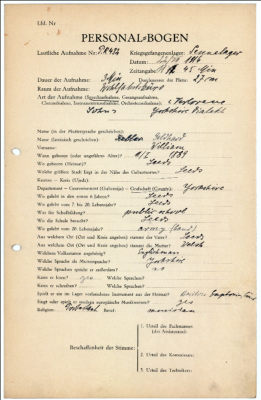 Lfd. Nr
PERSONAL-BOGEN
Lautliche Aufnahme Nr.: Kriegsgefangenenlager: Sennelager
Datum:
Zeitangabe: 45 Min
Dauer der Aufnahme: Durchmesser der Platte: 27 cm
Raum der Aufnahme:
Art der Aufnahme (Sprechaufnahme, Gesangsaufnahme,
Choraufnahme, Instrumentenaufnahme, Orchesteraufnahme):
Yorkshire Dialekt
Name (in der Muttersprache geschrieben):
Name (lateinisch geschrieben):
Vorname: William
Wann geboren (oder ungefähres Alter)? 1884
Wo geboren (Heimat)? Leeds
Welche größere Stadt liegt in der Nähe des Geburtsortes? Leeds
Kanton — Kreis (Ujedz):
Departement — Gouvernement (Gubernija) — Grafschaft (County): Yorkshire
Wo gelebt in den ersten 6 Jahren? Leeds
Wo gelebt vom 7 bis 20 Lebensjahr? Leeds
Was für Schulbildung? public school
Wo die Schule besucht? Leeds
Wo gelebt vom 20 Lebensjahr? army (band)
Aus welchem Ort (Ort und Kreis angeben) stammt der Vater? Leeds
Aus welchem Ort (Ort und Kreis angeben) stammt die Mutter?
Welchem Volksstamm angehörig? Englishman
Welche Sprache als Muttersprache? Yorkshire
Welche Sprachen spricht er außerdem? no
Kann er lesen? yes Welche Sprachen?
Kann er schreiben? Welche Sprachen?
Spielt er ein im Lager vorhandenes Instrument aus der Heimat?
Singt oder spielt er modern europäische Musikweisen? yes
Religion: Beruf: musician
Beschaffenheit der Stimme:
1. Urteil des Fachmannes
(des Assistenten):
2. Urteil des Kommissars:
3. Urteil des Technikers: